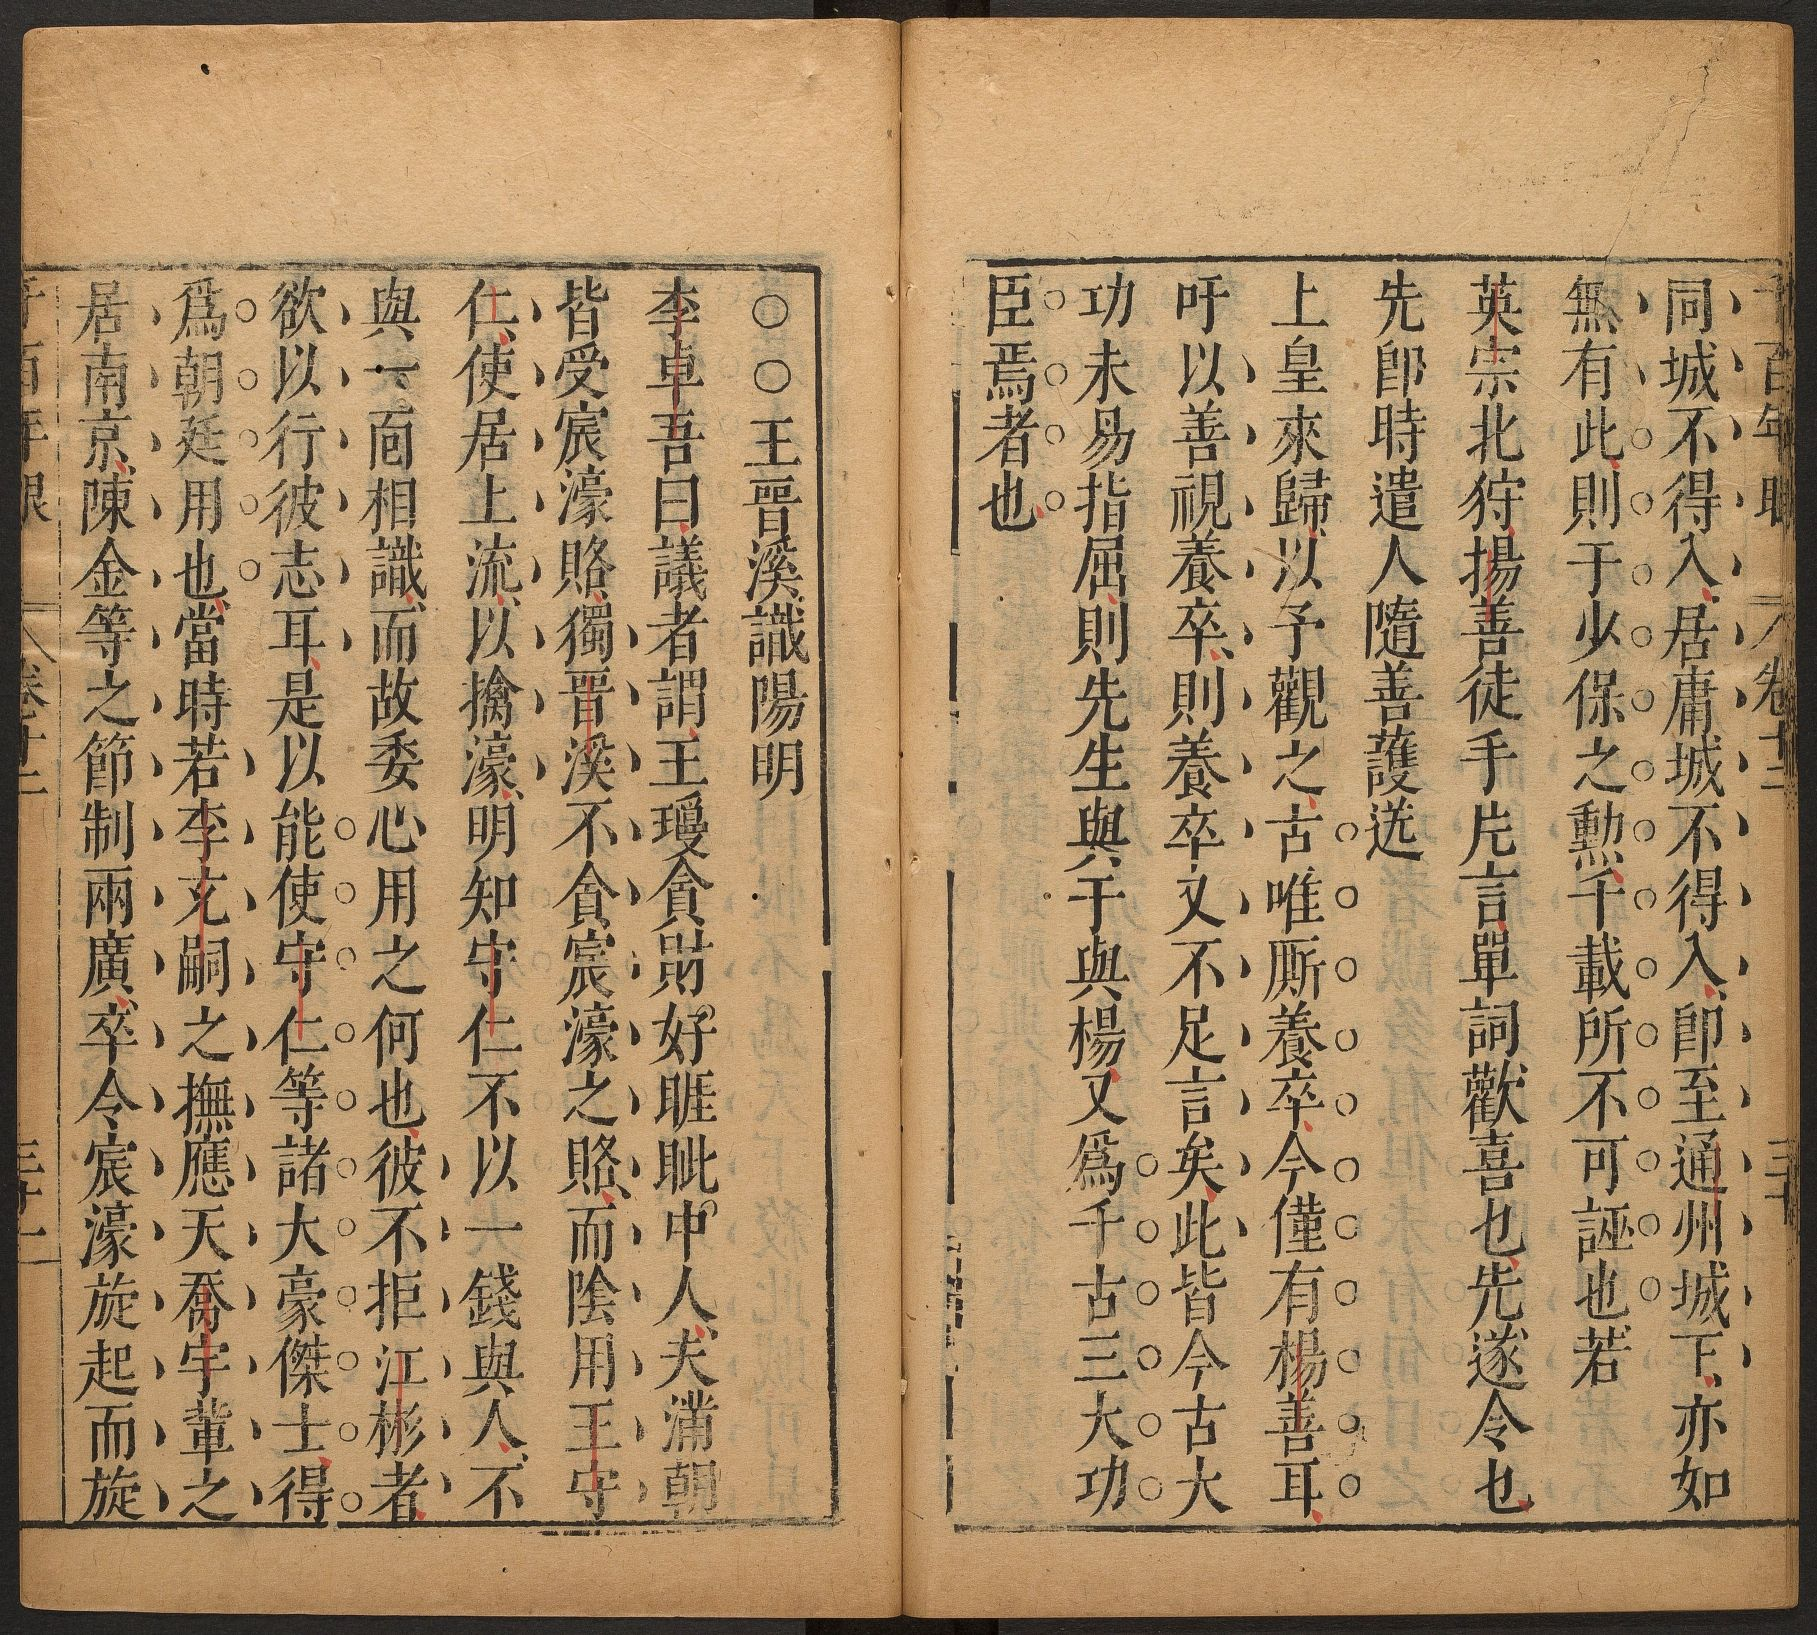 千百年眼 卷十二 三十
同城不得入居庸城不得入卽至通州城下亦如
無有此則于少保之勲千載所不可誣也若
英宗北狩揚善徒手片言單詞歡喜也先遂令也
先卽時遣人隨善護送
上皇來歸以予觀之古唯厮養卒今僅有楊善耳
吁以善視養卒則養卒又不足言矣此皆今古大
功未易指屈則先生與于與楊又爲千古三大功
臣焉者也
○○王晉溪識陽明
李卓吾曰議者謂王瓊貪財好睚眦中人夫滿朝
皆受宸濠賂獨晉溪不貪宸濠之賂而陰用王守
仁使居上流以擒濠明知守仁不以一錢與人不
與一面相識而故委心用之何也彼不拒江彬者
欲以行彼志耳是以能使守仁等諸大豪傑士得
爲朝廷用也當時若李充嗣之撫應天喬宇輩之
居南京陳金等之節制兩廣卒令宸濠旋起而旋
千百年眼 卷十二 三十一